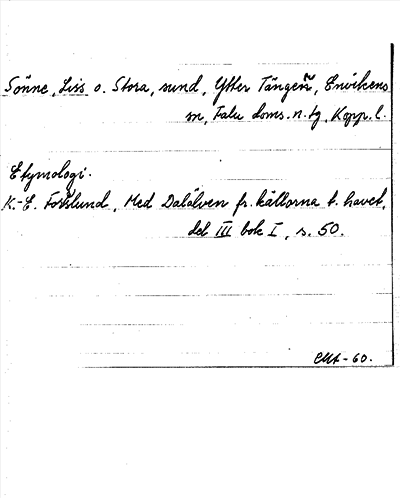 Sönne, Liss o. Stora, sund, Ytter Tängeñ, Envikens
sn, Falu doms. n. tg, Kopp. l.
Etymologi.
K.-E. Forslund, Med Dalälven fr. källorna t. havet,
del III bok I, s. 50.
-60.